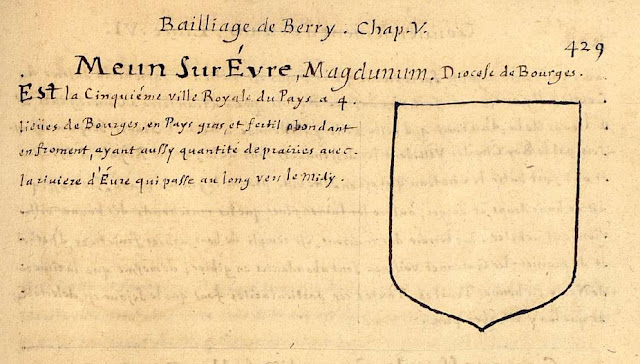 Bailliage de Berry. Chap. V.
429
Meun Sur Évre, Magdunum. Diocese de Bourges.
Est la Cinquiéme ville Royale du Pays a 4.
lieües de Bourges, en Pays gras, et fertil abondant
en froment, ayant aussy quantité de prairies avec
la riviere d'Évre qui passe au long vers le Midy.